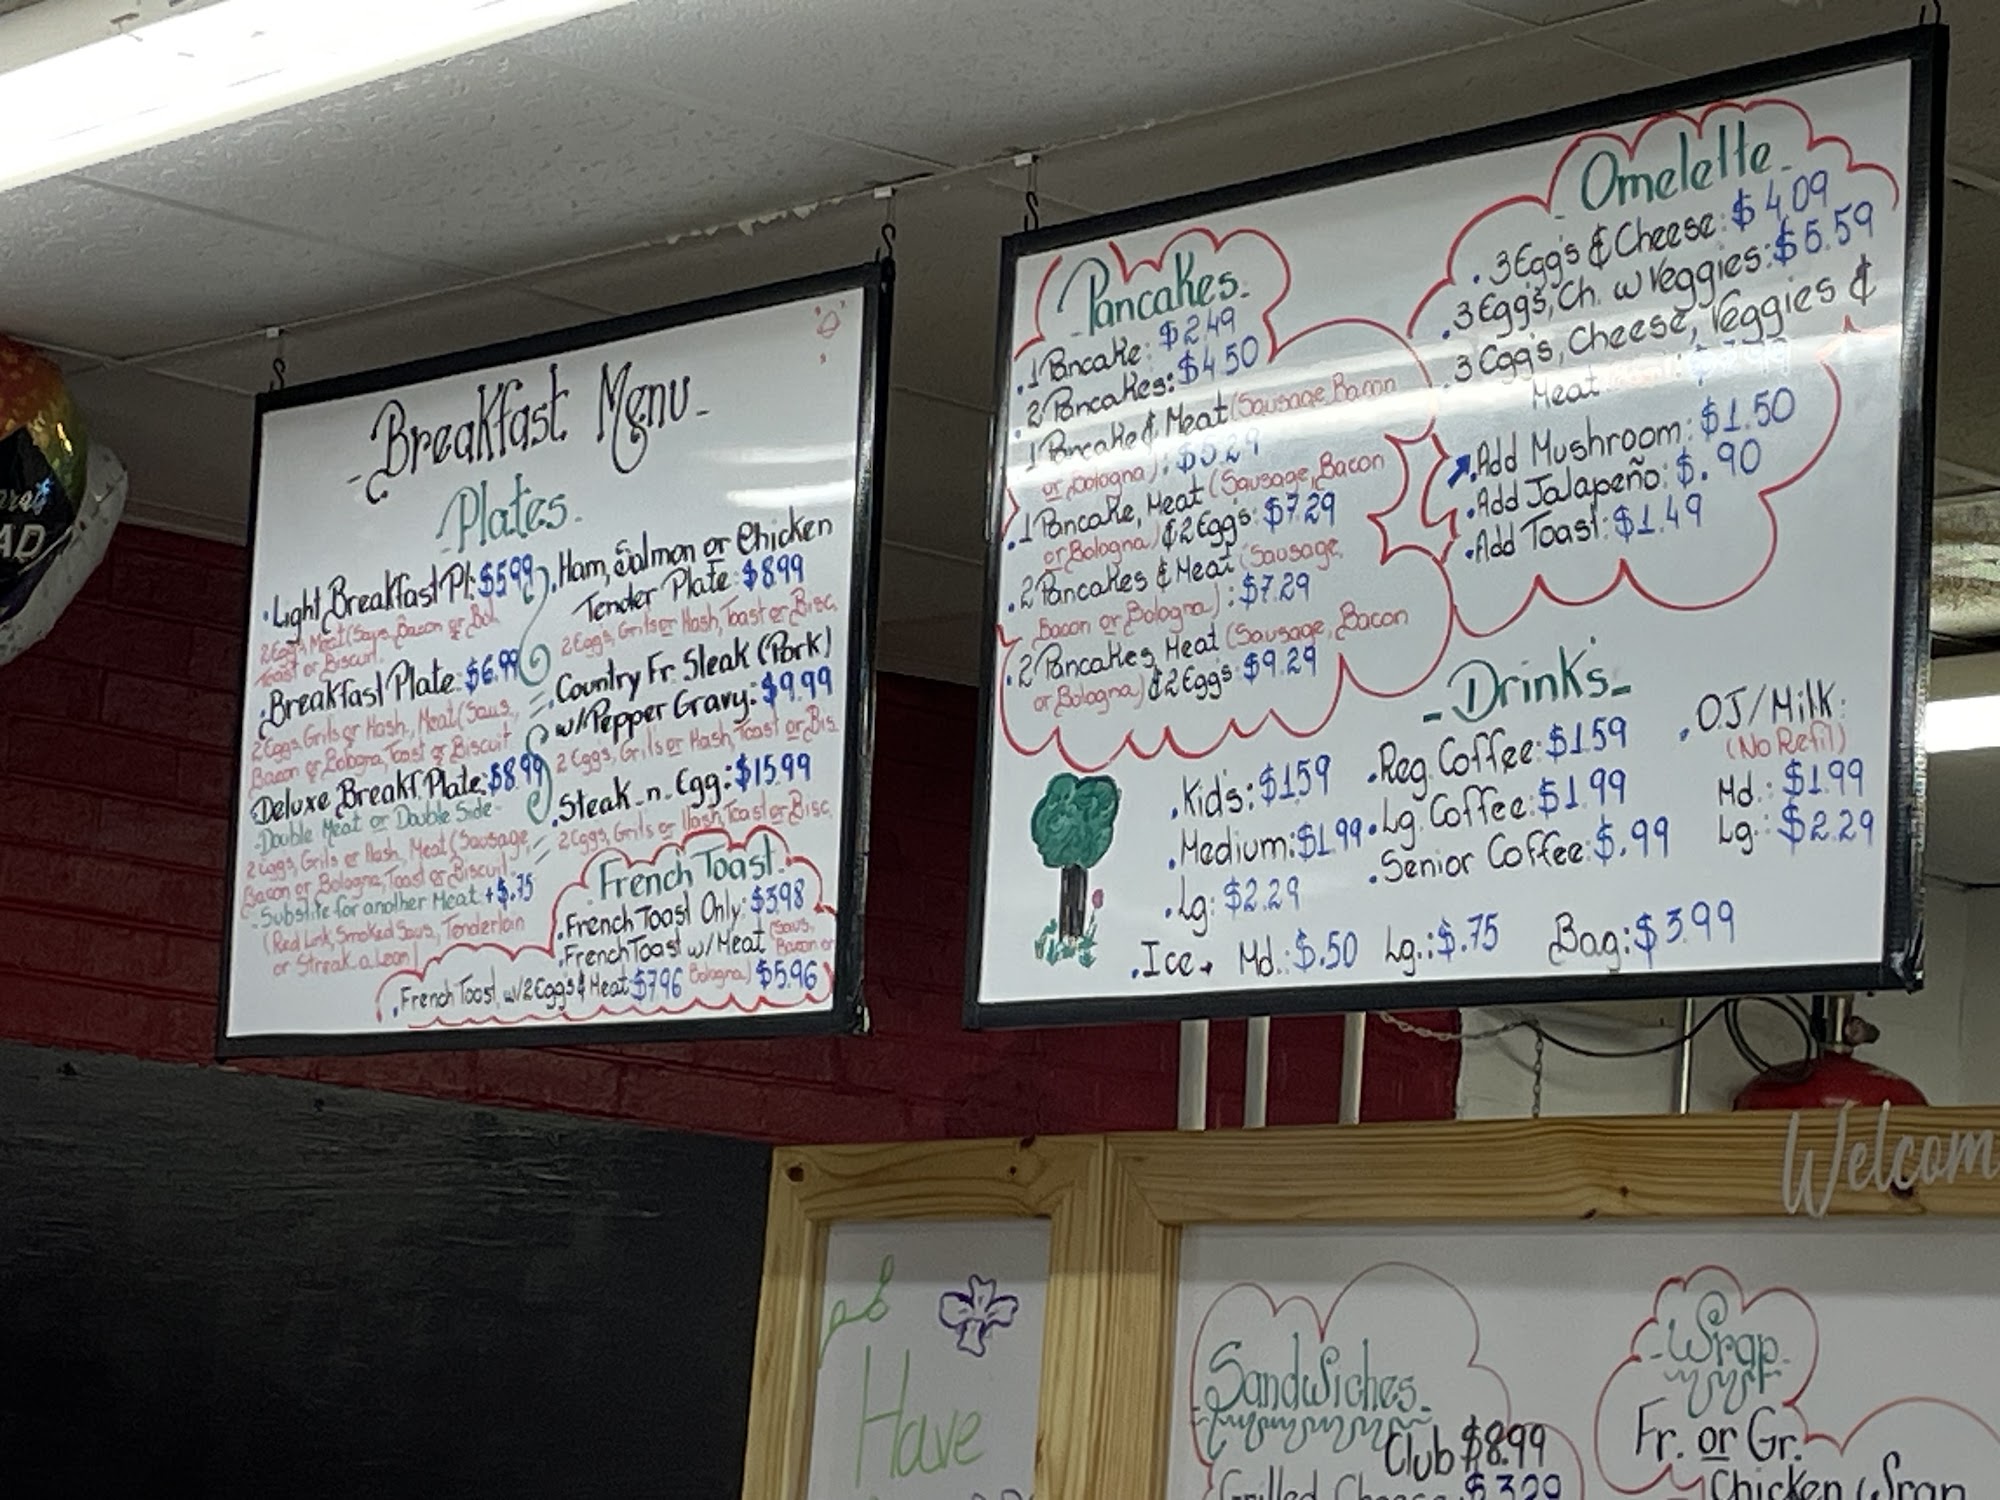 AD
-Breakfast Menu-
Plates-
.Light Breakfast Pl: $5.99
2 Eggs, Meat (Saus, Bacon or Bol.
Toast or Biscuit
.Breakfast Plate: $6.99
2 Eggs, Grits or Hash, Meat (Saus,
Bacon or Bologna, Toast or Biscuit
Deluxe Breakf. Plate: $8.99
-Double Meat or Double Side-
2 Eggs, Grits or Hash, Meat (Sausage,
Bacon or Bologna, Toast or Biscuit
-Substite for another Meat + $.75
(Red Link, Smoked Saus, Tenderloin
or Streak-a-Lean)
.Ham, Salmon or Chicken
Tender Plate: $8.99
2 Eggs, Grits or Hash, Toast or Bisc.
.Country Fr. Steak (Pork)
w/Pepper Gravy: $9.99
2 Eggs, Grits or Hash, Toast or Bis
.Steak-n-Egg: $15.99
2 Eggs, Grits or Hash, Toast or Bisc.
French Toast-
.French Toast Only: $3.98
.French Toast w/Meat (Saus,
Bacon or
Bologna) $5.96
.French Toast w/2 Egg's & Meat $7.96
-Pancakes-
.1 Pancake: $2.49
.2 Pancakes: $4.50
.1 Pancake & Meat (Sausage, Bacon
or Bologna): $5.29
.1 Pancake, Meat (Sausage, Bacon
or Bologna) & 2 Egg's: $7.29
.2 Pancakes & Meat (Sausage,
Bacon or Bologna): $7.29
.2 Pancakes, Meat (Sausage, Bacon
or Bologna) & 2 Egg's: $9.29
-Omelette-
.3 Egg's & Cheese: $4.09
.3 Egg's, Ch. w Veggies: $5.59
.3 Egg's, Cheese, Veggies &
Meat
.Add Mushroom: $1.50
.Add Jalapeño: $.90
.Add Toast: $1.49
-Drink's-
.Kid's: $1.59
.Medium: $1.99
.Lg: $2.29
.Reg. Coffee: $1.59
.Lg. Coffee: $1.99
.Senior Coffee: $.99
.OJ/Milk:
(No Refil)
Md.: $1.99
Lg.: $2.29
.Ice→ Md.: $.50 Lg.: $.75 Bag: $3.99
Welcom
Have
Sandwiches-
Club $8.99
Grilled Cheese $3.29
-Wrap-
Fr. or Gr.
Chicken Wrap